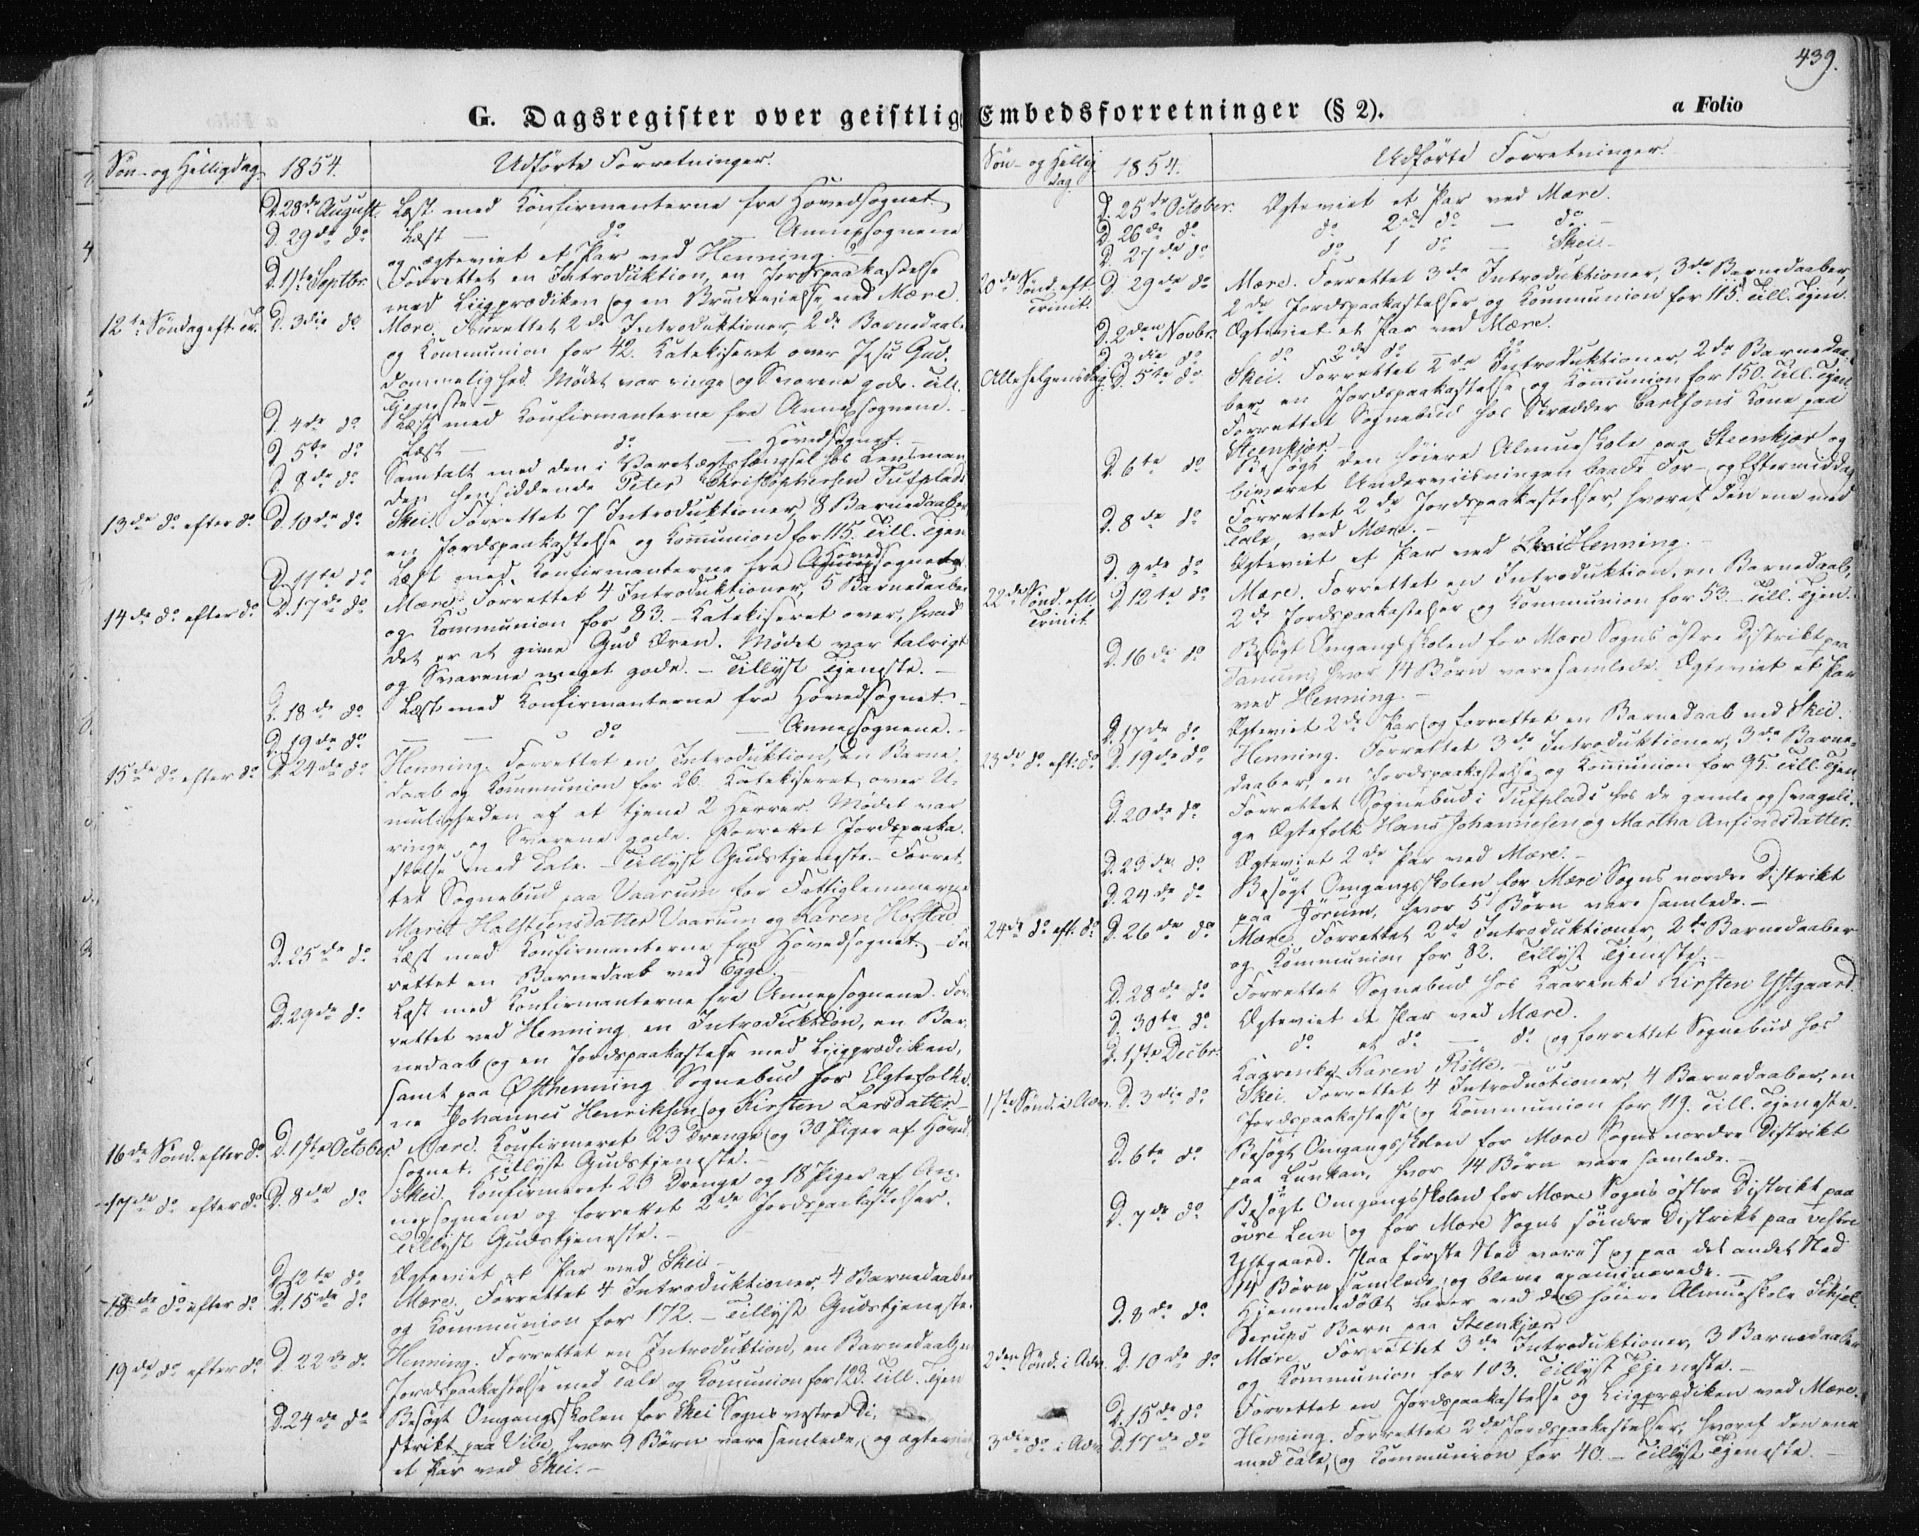 439.
G. Dagsregister over geistlige Embedsforretninger (§ 2).
a Folio
Søn- og Helligdag. 1854. Udførte Forretninger.
D. 28de August. Læst med Konfirmanterne fra Hovedsognet.
D. 29de do Læst — do — Annexsognene
og ægteviet et Par ved Henning. —
D. 1ste Septbr. Forrettet en Introduktion, en Jordspaakastelse
med Liigprædiken og en Brudevielse ved Mære.
12te Søndag eft. Tr. D. 3die do Mære. Forrettet 2de Introduktioner, 2de Barnedaab
og Kommunion for 42. Katekiseret over Jesu Gud-
dommelighed. Mødet var ringe og Svarene gode. Till.
Tjeneste. —
D. 4de do Læst med Konfirmanterne fra Annexsognene. —
D. 5te do Læst — do — Hovedsognet. —
D. 8de do Samtalt med den i Varetægtsfængsel hos Lensman
den hensiddende Peter Christophersen Tufplads
13de do efter do D. 10de do Skei. Forrettet 7 Introduktioner, 8 Barnedaaber
en Jordspaakastelse og Kommunion for 115. Till. Tjen
D. 11te do Læst med Konfirmanterne fra Hovedsognet
14de do efter do D. 17de do Mære. Forrettet 4 Introduktioner, 5 Barnedaaber
og Kommunion for 83. — Katekiseret over, hvad
det er at give Gud Æren. Mødet var talrigt
og Svarene meget gode. — Tillyst Tjeneste. —
D. 18de do Læst med Konfirmanterne fra Hovedsognet. —
D. 19de do — — do — Annexsognene. —
15de do efter do D. 24de do Henning. Forrettet en Introduktion, en Barne-
daab og Kommunion for 26. Katekiseret over U-
muligheden af at tjene 2 Herrer. Mødet var
ringe og Svarene gode. Forrettet Jordspaaka-
stelse med Tale. — Tillyst Gudstjeneste. — Forret-
tet Sognebud paa Vaarum for Fattiglemmerne
Marit Halsteensdatter Vaarum og Karen Hofstad
D. 25de do Læst med Konfirmanterne fra Hovedsognet. For
rettet en Barnedaab ved Egge. —
D. 29de do Læst med Konfirmanterne fra Annexsognene. For-
rettet ved Henning en Introduktion, en Bar-
nedaab og en Jordspaakastelse med Liigprædiken,
samt paa Østhenning Sognebud hos Ægtefolke-
ne Johannes Henriksen og Kirsten Larsdatter. —
16de Sønd. efter do D. 1ste October. Mære. Konfirmeret 23 Drenge og 30 Piger af Hoved
sognet. Tillyst Gudstjeneste. —
17de do efter do D. 8de do Skei. Konfirmeret 20 Drenge og 18 Piger af An-
nexsognene og forrettet 2de Jordspaakastelser.
Tillyst Gudstjeneste. —
D. 12te do Ægteviet et Par ved Skei —
18de do efter do D. 15de do Mære. Forrettet 4 Introduktioner, 4 Barnedaaber
og Kommunion for 172. — Tillyst Gudstjeneste.
19de do efter do D. 22de do Henning. Forrettet en Introduktion, en Barnedaab, en
Jordspaakastelse med Tale og Komunion for 123. Till. Tjen
D. 24de do Besøgt Omgangsskolen for Skei Sogns vestre Di-
strikt paa Vibe, hvor 9 Børn vare samlede, og ægteviet
et Par ved Skei. —
Søn- og Hellig
dag. 1854. Udførte Forretninger.
D. 25de October. Ægteviet et Par ved Mære.
D. 26de do do 2de do — do —
D. 27de do do 1 do — Skei —
20de Sønd. eft.
Trinit. D. 29de do Mære. Forrettet 3de Introduktioner, 3de Barnedaaber,
2de Jordspaakastelser og Kommunion for 115. Till. Tjen.
D. 2den Novbr. Ægteviet et Par ved Mære.
D. 3die do do 2de do — do
Allehelgensdag D. 5te do Skei. Forrettet 2de Introduktioner, 2de Barnedaa-
ber, en Jordspaakastelse og Kommunion for 150. Till. Tjen
Forrettet Sognebud hos Skrædder Carlsons Kone paa
Steenkjær. —
D. 6te do Besøgt den høiere Almueskole paa Steenkjær og
biværet Underviisningen baade For- og Eftermiddag
D. 8de do Forrettet 2de Jordspaakastelser, hvoraf den ene med
Tale, ved Mære. —
D. 9de do Ægteviet et Par ved Henning. —
22de Sønd. eft.
Trinit. D. 12te do Mære. Forrettet en Introduktion, en Barnedaab,
2de Jordspaakastelser og Kommunion for 53. — Till. Tjen.
D. 16de do Besøgt Omgangsskolen for Mære Sogns østre Distrikt paa
Tanum, hvor 14 Børn vare samlede. Ægteviet et Par
ved Henning. —
D. 17de do Ægteviet 2de Par og forrettet en Barnedaab ved Skei.
23de do eft. do D. 19de do Henning. Forrettet 3de Introduktioner, 3de Barne-
daaber, en Jordspaakastelse og Kommunion for 95. Till. Tjen.
D. 20de do Forrettet Sognebud i Tufplads hos de gamle og svageli-
ge Ægtefolk Hans Johannesen og Martha Anfindsdatter.
D. 23de do Ægteviet 2de Par ved Mære. —
D. 24de do Besøgt Omgangsskolen for Mære Sogns nordre Distrikt
paa Jørum, hvor 5 Børn vare samlede. —
24de do eft. do D. 26de do Mære. Forrettet 2de Introduktioner, 2de Barnedaaber
og Kommunion for 82. Tillyst Tjeneste. —
D. 28de do Forrettet Sognebud hos Kaarenke Kirsten Ystgaard.
D. 30te do Ægteviet et Par ved Mære.
D. 1ste Decbr. do et do — do og forrettet Sognebud hos
Kaarenke Karen Rølte. —
1ste Sønd. i Adv. D. 3die do Skei. Forrettet 4 Introductioner, 4 Barnedaaber, en
Jordspaakastelse og Kommunion for 119. Till. Tjeneste.
D. 6te do Besøgt Omgangsskolen for Mære Sogns nordre Distrikt
paa Lunkan, hvor 14 Børn vare samlede. —
D. 7de do Besøgt Omgangsskolen for Mære Sogns østre Distrikt paa
øvre Lein og for Mære Sogns søndre Distrikt paa vestre
Ystgaard. Paa første Sted vare 7 og paa det andet Sted
14 Børn samlede og bleve examinerede. —
D. 8de do Hjemmedøbt Lærer ved den høiere Almueskole Schjel-
derups Barn paa Steenkjær
2den Sønd. i Adv. D. 10de do Mære. Forrettet 3de Introduktioner, 3 Barnedaaber
og Kommunion for 103. Tillyst Tjeneste. —
D. 15de do Forrettet en Jordspaakastelse og Liigprædiken ved Mære.
3die do i Adv. D. 17de do Henning. Forrettet 2de Jordspaakastelser, hvoraf den ene
med Tale, og Kommunion for 40. — Tillyst Tjeneste. —